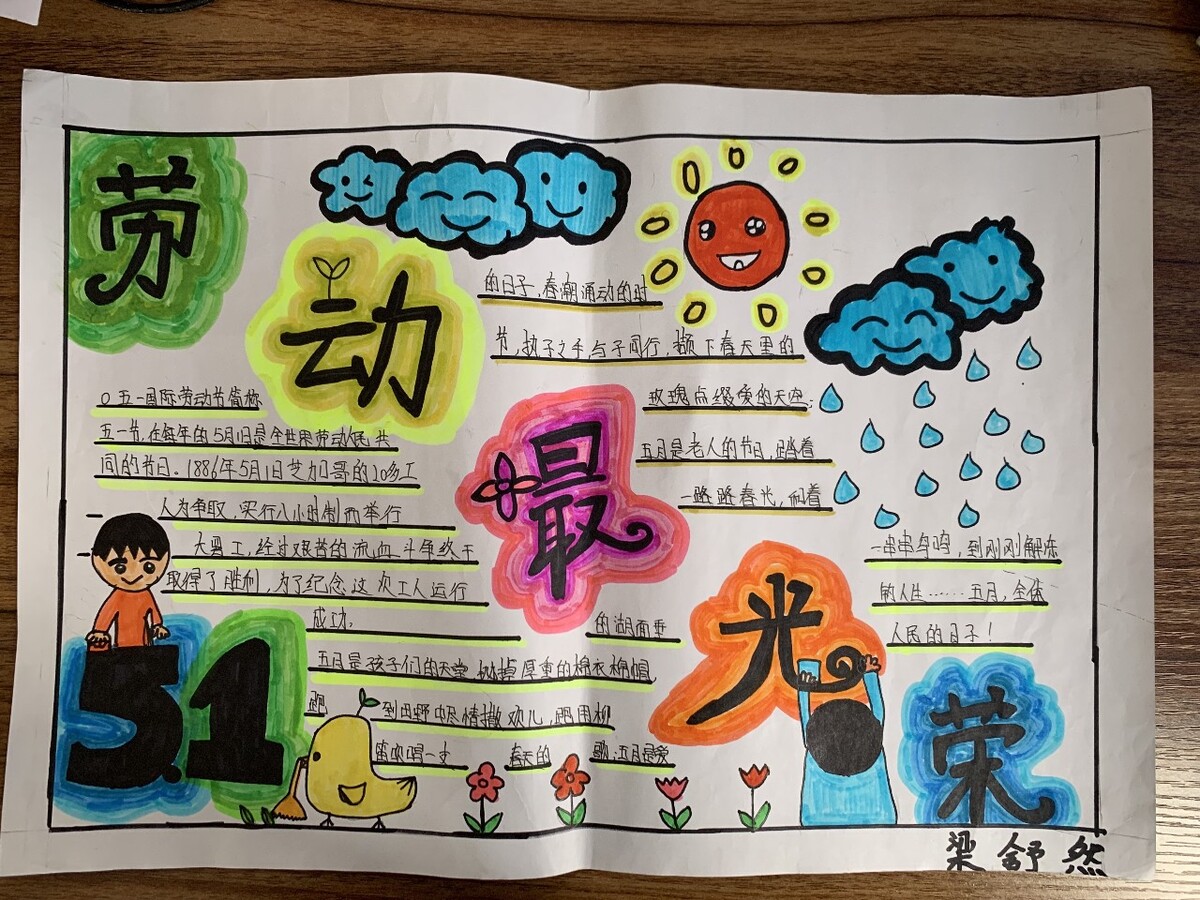 劳动最光荣
O五一国际劳动节简称
五一节,在每年的5月1日是全世界劳动人民共
同的节日。1886年5月1日芝加哥的20多工
人为争取,实行八小时制而举行
大罢工,经过艰苦的流血斗争终于
取得了胜利,为了纪念这次工人运行
成功,
五月是孩子们的天堂,
厚重的棉衣棉帽
到田野中尽情撒欢儿,
吹唱一支
春天的
歌,五月是爱
的日子,春潮涌动的时
节,执子之手,与子同行,颗下春天里的
玫瑰点缀爱的天空;
五月是老人的节日,踏着
一路路春光,
的湖面垂
一串串鸟鸣,到刚刚解冻
的人生……五月,全体
人民的日子!
5.1
梁舒然